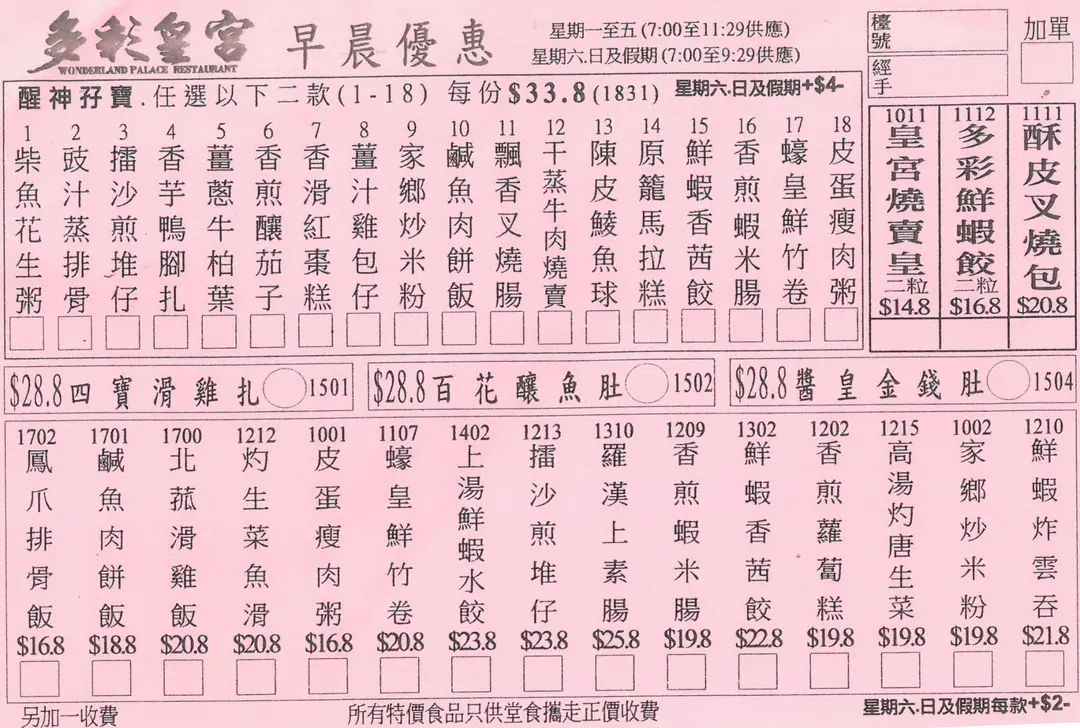 多彩皇宮
WONDERLAND PALACE RESTAURANT
早晨優惠
星期一至五(7:00至11:29供應)
星期六.日及假期(7:00至9:29供應)
檯號
經手
加單
醒神孖寶.任選以下二款(1-18) 每份$33.8(1831) 星期六.日及假期+$4-
1 柴魚花生粥
2 豉汁蒸排骨
3 擂沙煎堆仔
4 香芋鴨腳扎
5 薑蔥牛柏葉
6 香煎釀茄子
7 香滑紅棗糕
8 薑汁雞包仔
9 家鄉炒米粉
10 鹹魚肉餅飯
11 飄香叉燒腸
12 干蒸牛肉燒賣
13 陳皮鯪魚球
14 原籠馬拉糕
15 鮮蝦香茜餃
16 香煎蝦米腸
17 蠔皇鮮竹卷
18 皮蛋瘦肉粥
1011 皇宮燒賣皇 二粒 $14.8
1112 多彩鮮蝦餃 二粒 $16.8
1111 酥皮叉燒包 $20.8
$28.8 四寶滑雞扎 1501
$28.8 百花釀魚肚 1502
$28.8 醬皇金錢肚 1504
1702 鳳爪排骨飯 $16.8
1701 鹹魚肉餅飯 $18.8
1700 北菰滑雞飯 $20.8
1212 灼生菜魚滑 $20.8
1001 皮蛋瘦肉粥 $16.8
1107 蠔皇鮮竹卷 $20.8
1402 上湯鮮蝦水餃 $23.8
1213 擂沙煎堆仔 $23.8
1310 羅漢上素腸 $25.8
1209 香煎蝦米腸 $19.8
1302 鮮蝦香茜餃 $22.8
1202 香煎蘿蔔糕 $19.8
1215 高湯灼唐生菜 $19.8
1002 家鄉炒米粉 $19.8
1210 鮮蝦炸雲吞 $21.8
另加一收費
所有特價食品只供堂食攜走正價收費
星期六.日及假期每款+$2-